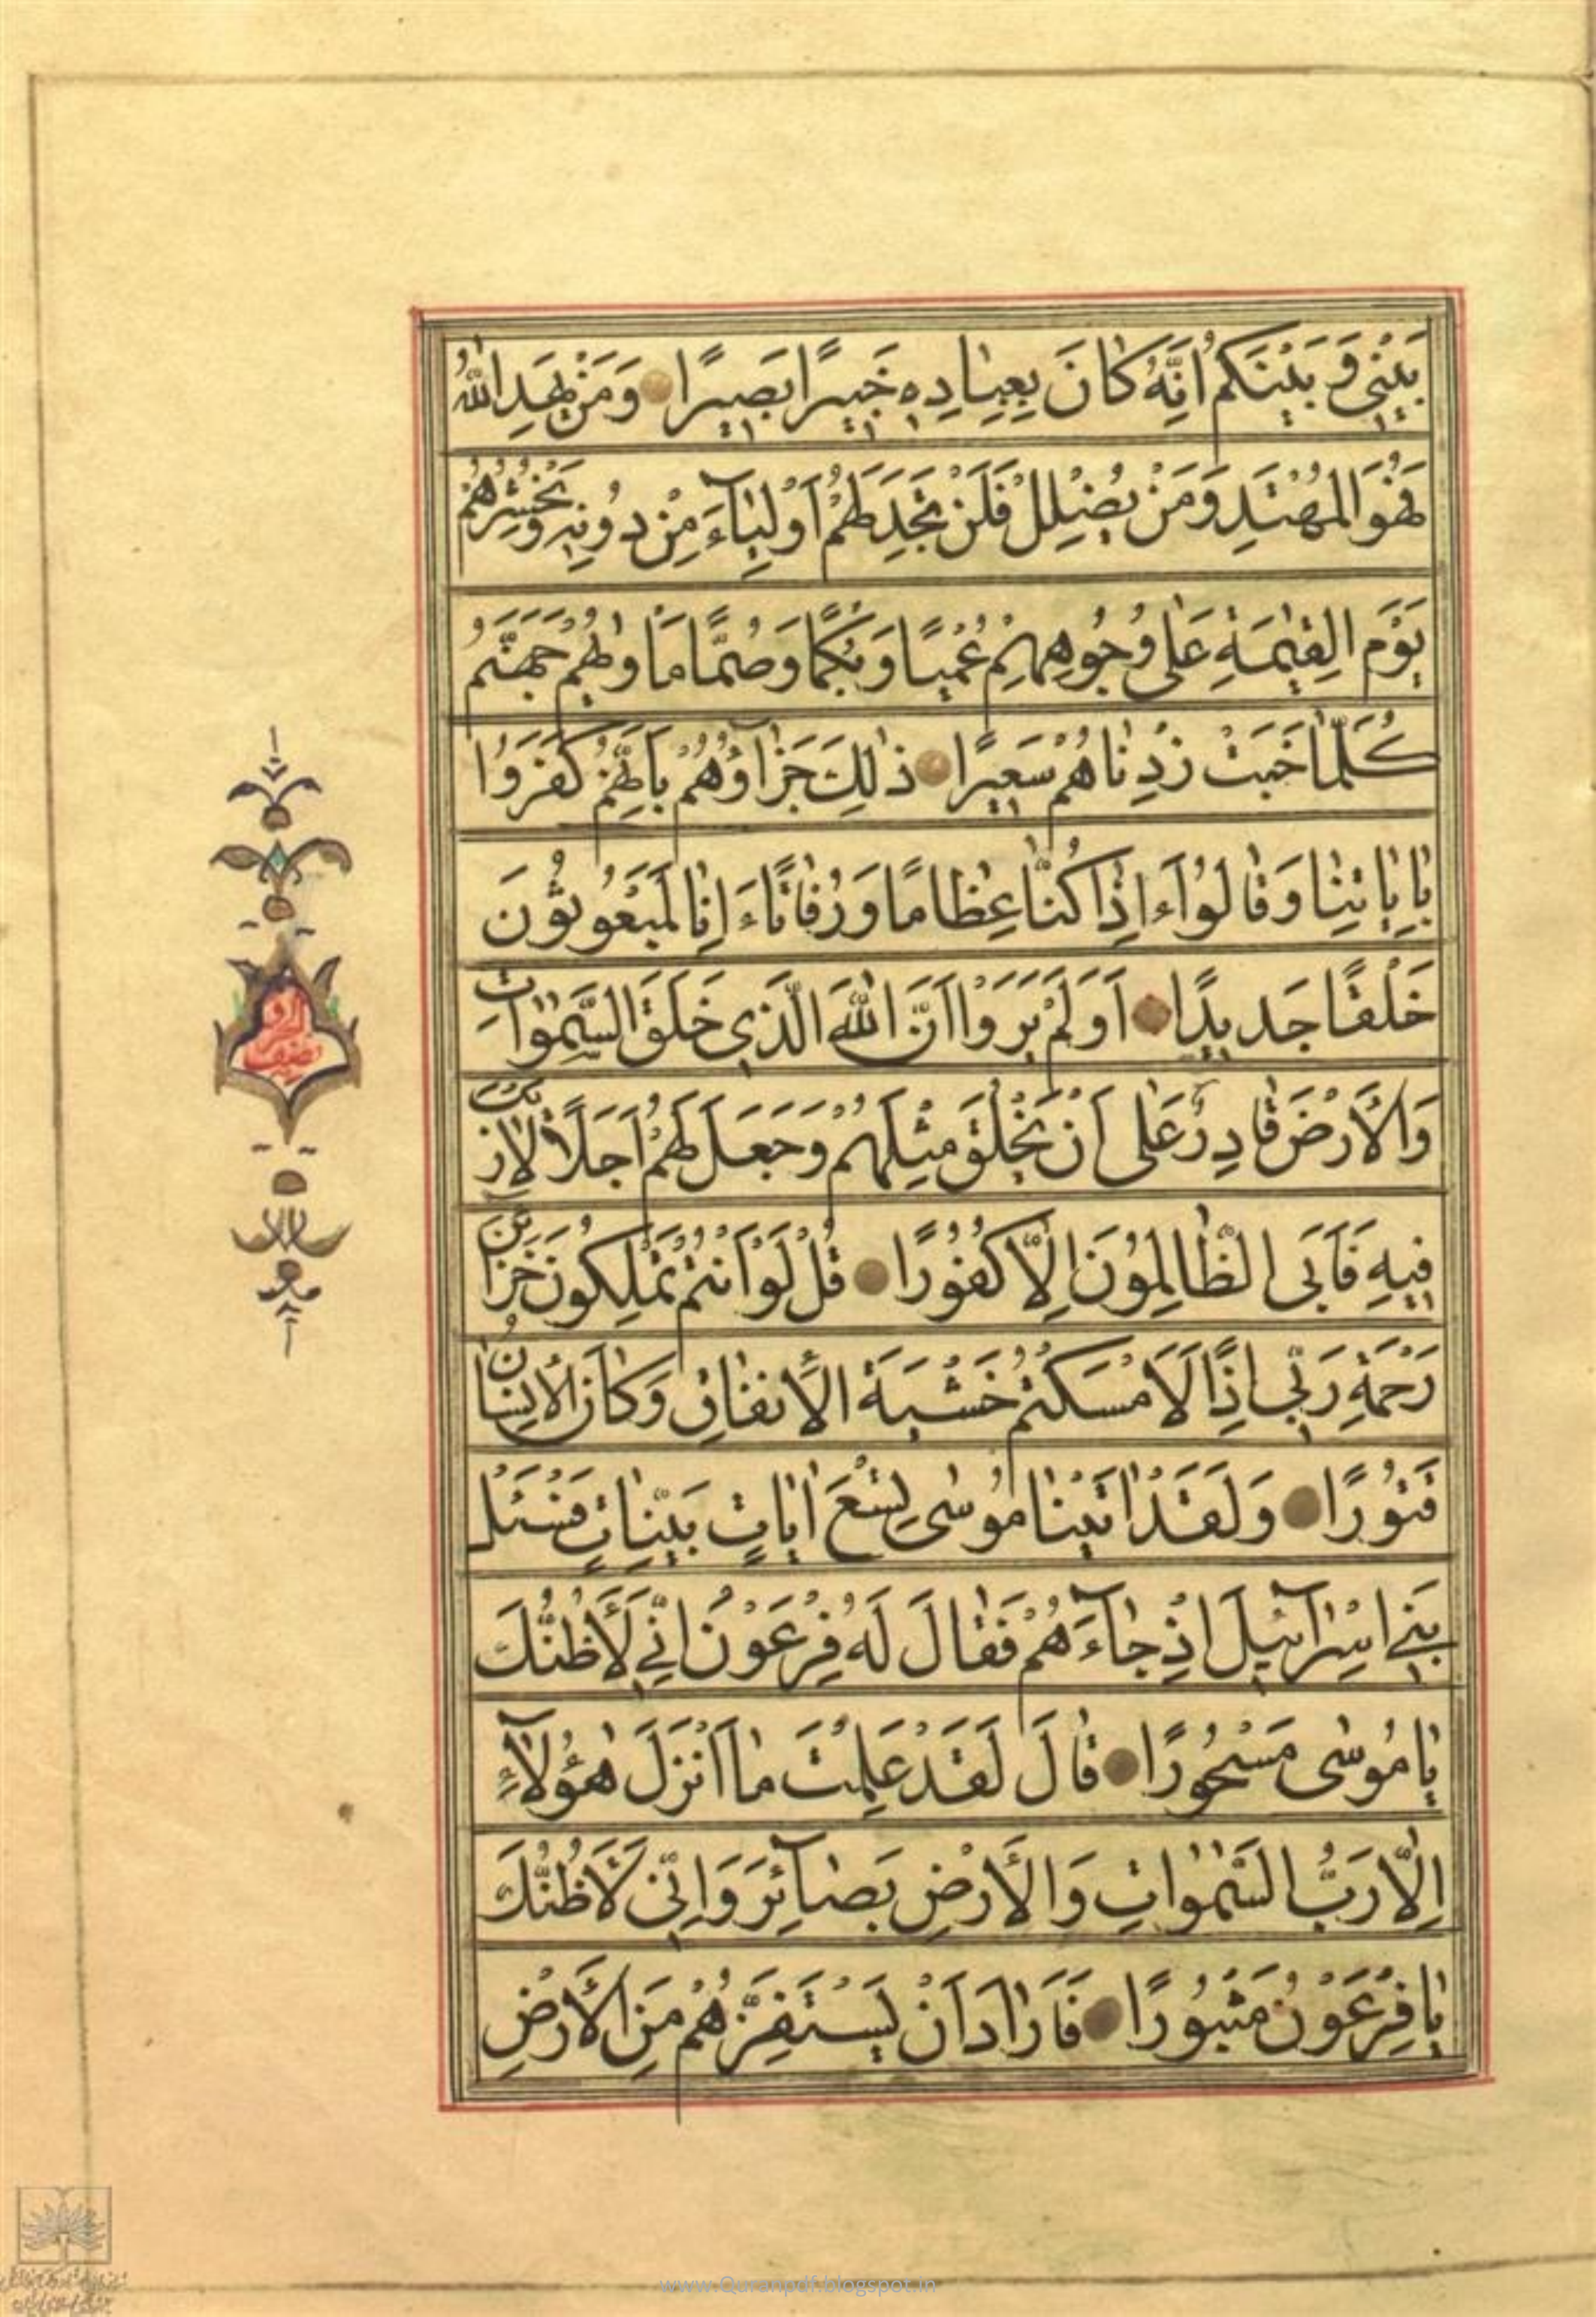 بَيْنِي وَبَيْنَكُمْ اِنَّهُ كَانَ بِعِبَادِهِ خَبِيرًا بَصِيرًا وَمَنْ يَهْدِ اللّٰهُ
فَهُوَ الْمُهْتَدِ وَمَنْ يُضْلِلْ فَلَنْ تَجِدَ لَهُمْ اَوْلِيَآءَ مِنْ دُونِهِ وَنَحْشُرُهُمْ
يَوْمَ الْقِيٰمَةِ عَلٰى وُجُوهِهِمْ عُمْيًا وَبُكْمًا وَصُمًّا مَاْوٰيهُمْ جَهَنَّمُ
كُلَّمَا خَبَتْ زِدْنَاهُمْ سَعِيرًا ذٰلِكَ جَزَآؤُهُمْ بِاَنَّهُمْ كَفَرُوا
بِاٰيَاتِنَا وَقَالُوا ءَاِذَا كُنَّا عِظَامًا وَرُفَاتًا ءَاِنَّا لَمَبْعُوثُونَ
خَلْقًا جَدِيدًا اَوَلَمْ يَرَوْا اَنَّ اللّٰهَ الَّذِي خَلَقَ السَّمٰوَاتِ
وَالْاَرْضَ قَادِرٌ عَلٰى اَنْ يَخْلُقَ مِثْلَهُمْ وَجَعَلَ لَهُمْ اَجَلًا لَارَيْبَ
فِيهِ فَاَبَى الظَّالِمُونَ اِلَّا كُفُورًا قُلْ لَوْ اَنْتُمْ تَمْلِكُونَ خَزَآئِنَ
رَحْمَةِ رَبِّي اِذًا لَاَمْسَكْتُمْ خَشْيَةَ الْاِنْفَاقِ وَكَانَ الْاِنْسَانُ
قَتُورًا وَلَقَدْ اٰتَيْنَا مُوسٰى تِسْعَ اٰيَاتٍ بَيِّنَاتٍ فَسْئَلْ
بَنِي اِسْرَآئِيلَ اِذْ جَآءَهُمْ فَقَالَ لَهُ فِرْعَوْنُ اِنِّي لَاَظُنُّكَ
يَا مُوسٰى مَسْحُورًا قَالَ لَقَدْ عَلِمْتَ مَا اَنْزَلَ هٰؤُلَآءِ
اِلَّا رَبُّ السَّمٰوَاتِ وَالْاَرْضِ بَصَآئِرَ وَاِنِّي لَاَظُنُّكَ
يَا فِرْعَوْنُ مَثْبُورًا فَاَرَادَ اَنْ يَسْتَفِزَّهُمْ مِنَ الْاَرْضِ
www.Quranpdf.blogspot.in